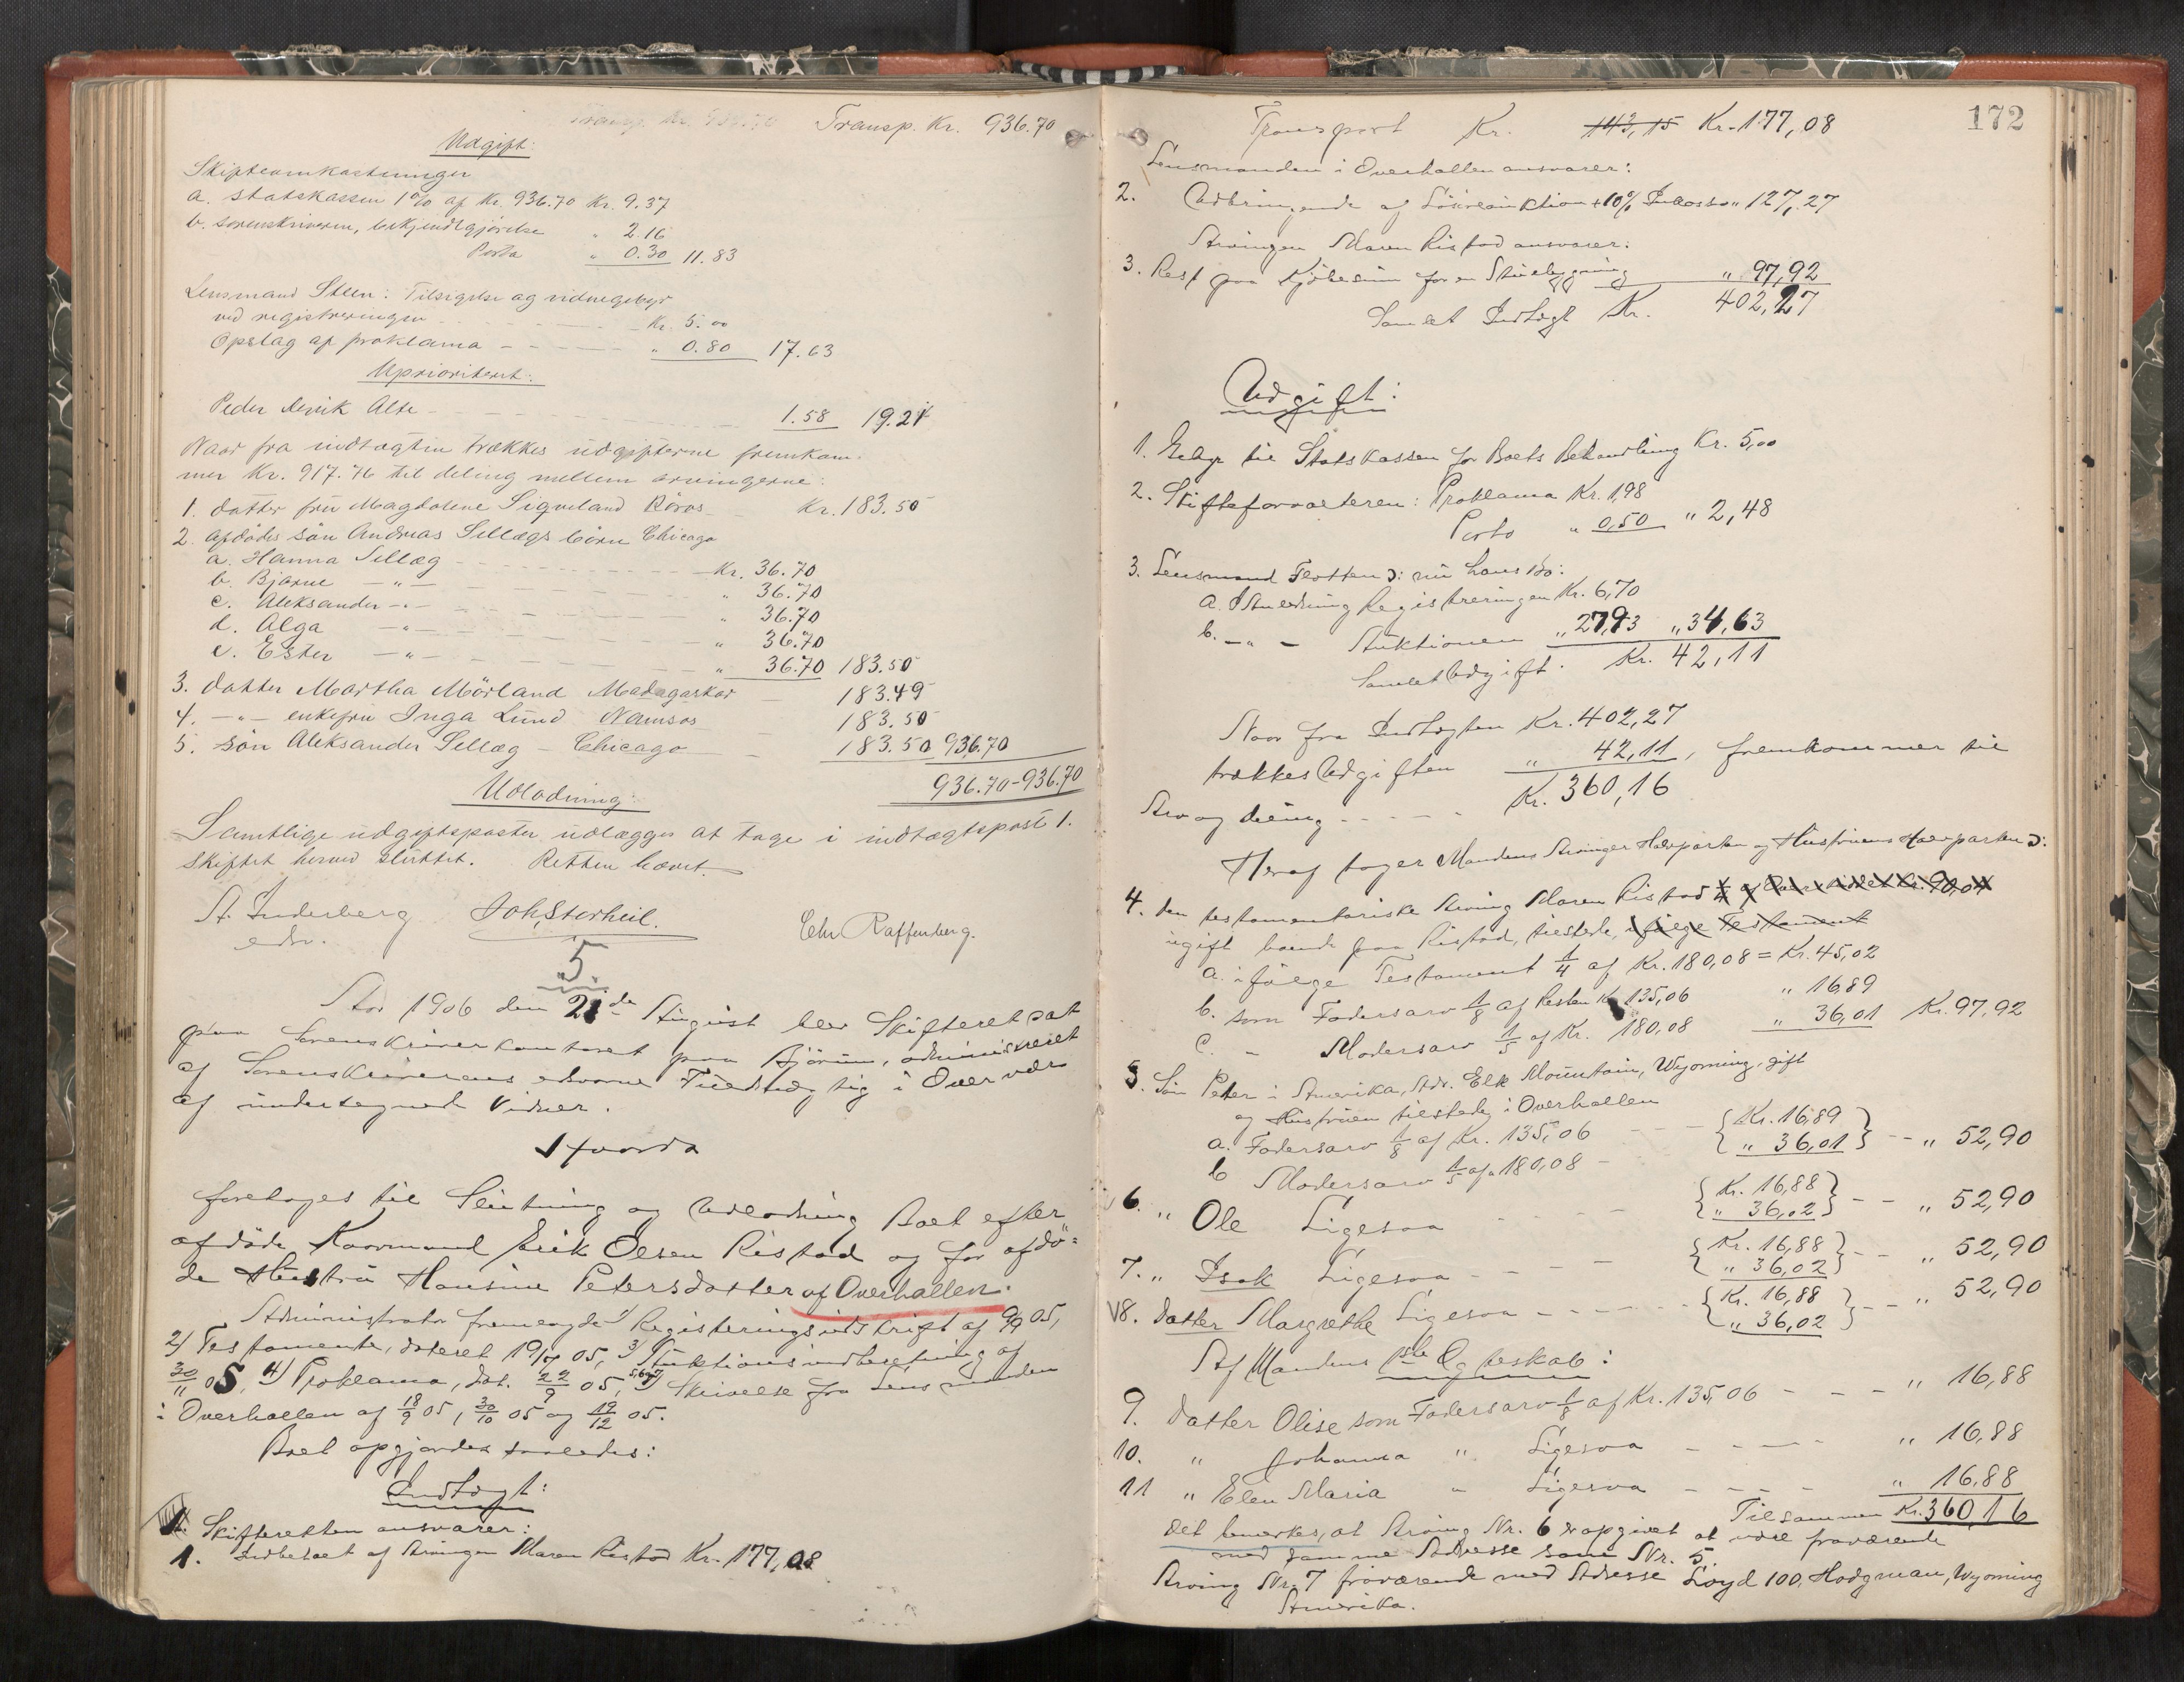 Transp. Kr. 936.70
Udgift:
Skifteomkostninger
a. statskassen 1% af Kr. 936.70 Kr. 9.37
b. sorenskriveren, bekjendtgjörelse " 2.16
Porto " 0.30 11.83
Lensmand Steen: Tilsigelse og vidnegebyr
ved registreringen Kr. 5.00
Opslag af proklama " 0.80 17.63
Uprioriteret:
Peder Alte 1.58 19.21
Naar fra indtægten trækkes udgifterne fremkom-
mer Kr. 917.46 til deling mellem arvingerne:
1. datter fru Magdalene Siqveland Röros Kr. 183.50
2. afdöde sön Andreas Sellægs börn Chicago
a. Hanna Sellæg Kr. 36.70
b. Bjarne —"— " 36.70
c. Aleksander —"— " 36.70
d. Alga —"— " 36.70
e. Ester —"— " 36.70 183.50
3. datter Martha Mörland Madagaskar 183.49
4. —"— enkefru Inga Lund Namsos 183.50
5. sön Aleksander Sellæg - Chicago 183.50 936.70
936.70-936.70
Udlodning:
Samtlige udgiftsposter udlægges at tage i indtægtspost 1.
Skiftet herved sluttet. Retten hævet.
A. Inderberg Joh. Storheil.
edsv. Chr Raffenberg.
5.
Aar 1906 den 21de August blev Skifteret sat
paa Sorenskriverkontoret paa Bjørum, administreret
af Sorenskriverens edsvorne Fuldmægtig i Overvær
af undertegnede Vidner.
Hvorda
foretoges til Slutning og Udlodning Boet efter
afdöde Kaarmand Erik Olsen Ristad og for afdö-
de Hustru Hansine Petersdatter af Overhallen.
Administrator fremlagde 1) Registeringsudskrift af 9/9 05,
2) Testamente, dateret 19/7 05, 3) Auktionsindberetning af
30/11 05, 4) Proklama, dat. 22/9 05, 5,6 og 7) Skrivelse fra Lensmanden
i Overhallen af 18/9 05, 30/10 05 og 19/12 05.
Boet opgjordes saaledes:
Indtægt:
1. Skifteretten ansvarer:
1. Indbetalt af Arvingen Maren Ristad Kr. 177,08
172
Transport Kr. 143,15 Kr. 177,08
Lensmanden i Overhallen ansvarer:
2. Udbringende af Løsøreauktion + 10% Inkasso " 127,27
Arvingen Maren Ristad ansvarer:
3. Rest paa Kjöbesum for en Stuebygning " 97,92
Samlet Indtægt Kr. 402,27
Udgift:
1. Gebyr til Statskassen for Boets Behandling Kr. 5,00
2. Skifteforvalteren: Proklama Kr. 1,98
Porto " 0,50 " 2,48
3. Lensmand Flotten ɔ: nu hans Bo:
a. I Anledning Registreringen Kr. 6,70
b. —"— Auktionen " 27,93 " 34,63
Samlet Udgift: Kr. 42,11
Naar fra Indtægten Kr. 402,27
trækkes Udgiften " 42,11, fremkommer til
Arv og deling Kr. 360,16
Heraf tager Mandens Arvinger Halvparten og Hustruens Halvparten ɔ:
4. den testamentariske Arving Maren Ristad
ugift boende paa Ristad, tilstede, ifølge Testament
a. ifølge Testament 1/4 af Kr. 180,08 = Kr. 45,02
b. som Fadersarv 1/8 af Resten Kr. 135,06 " 16,89
c. - Modersarv 1/5 af Kr. 180,08 " 36,01 Kr. 97,92
5. Sön Peter i Amerika, Adr. Elk Mountain, Wyoming, gift
og Hustruen tilstede i Overhallen
a. Fadersarv 1/8 af Kr. 135,06 Kr. 16,89
b Modersarv 1/5 af " 180,08 " 36,01 " 52,90
6. " Ole Ligesaa Kr. 16,88 " 36,02 " 52,90
7. " Isak Ligesaa Kr. 16,88 " 36,02 " 52,90
8. datter Margrethe Ligesaa Kr. 16,88 " 36,02 " 52,90
Af Mandens 1ste Ægteskab:
9. datter Olise som Fadersarv 1/8 af Kr. 135,06 " 16,88
10. " Johanna " Ligesaa " 16,88
11 " Elen Maria " Ligesaa " 16,88
Tilsammen Kr. 360,16
Det bemerkes, at Arving Nr. 6 er opgivet at være fraværende
med samme Adresse som Nr. 5.
Arving Nr. 7 fraværende med Adresse Loyd 100, Hodgman, Wyoming
Amerika.